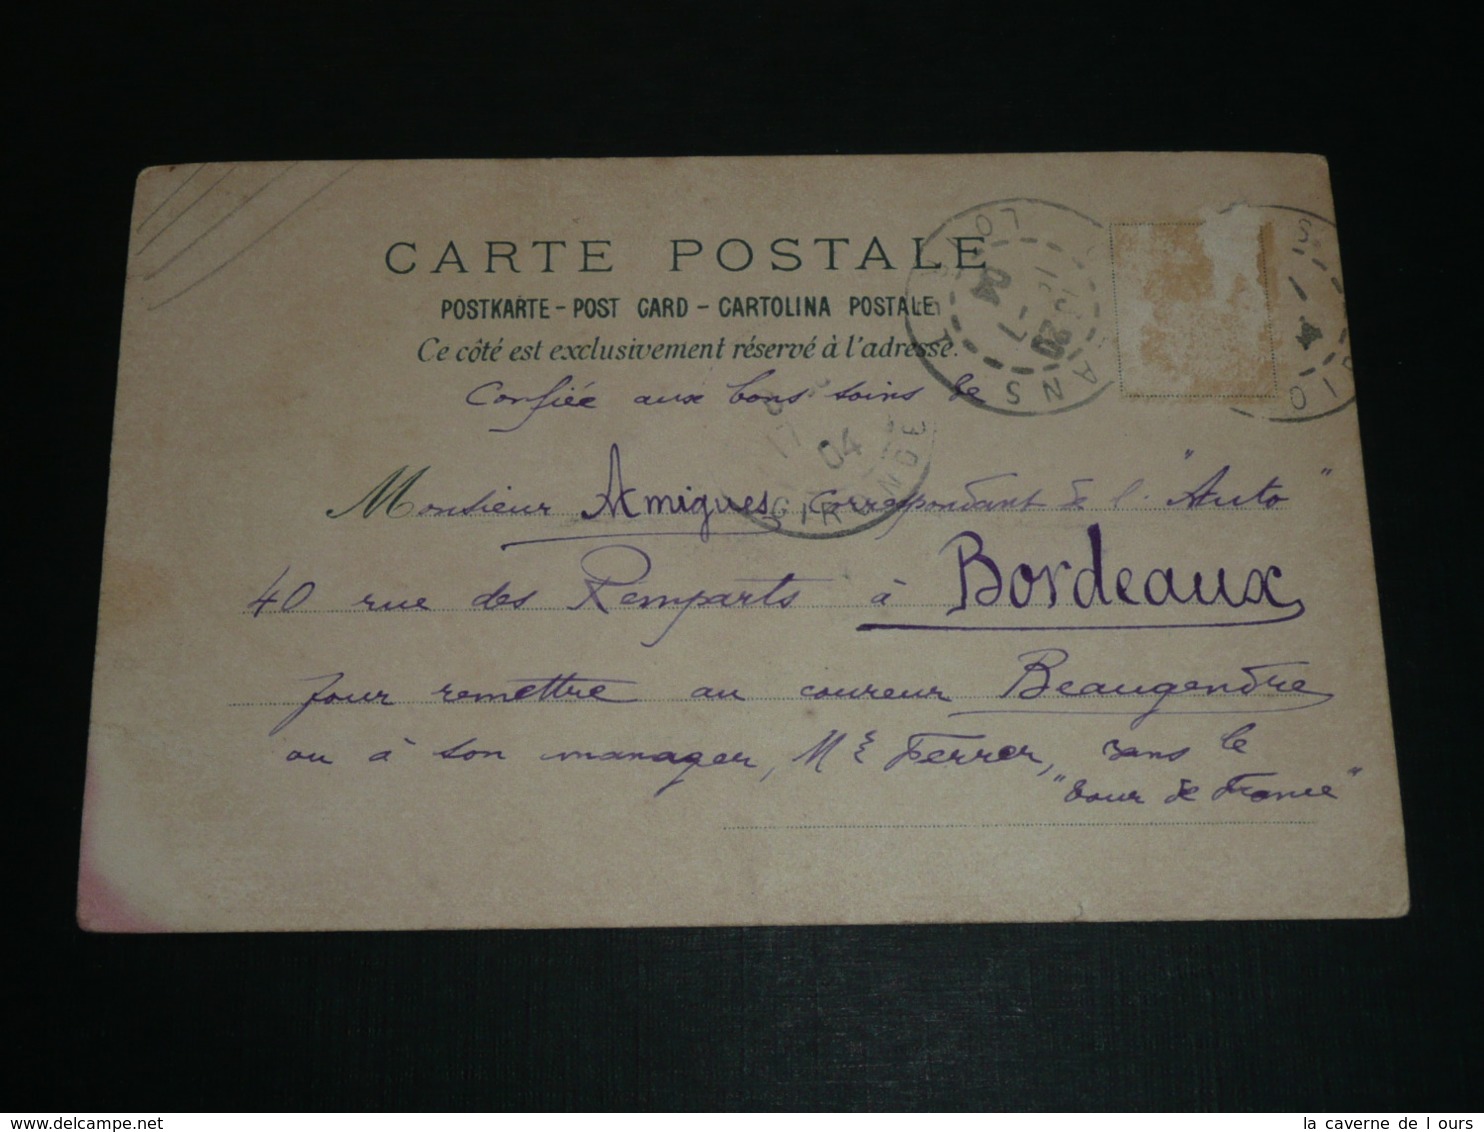 CARTE POSTALE
POSTKARTE - POST CARD - CARTOLINA POSTALE
Ce côté est exclusivement réservé à l'adresse.
Confiée aux bons soins de
Monsieur Amigues, correspondant de l'"Auto"
40 rue des Remparts à Bordeaux
pour remettre au coureur Beaugendre
ou à son manager, Mr Ferrer, dans le
"tour de France"
04
GIRONDE
la caverne de l ours